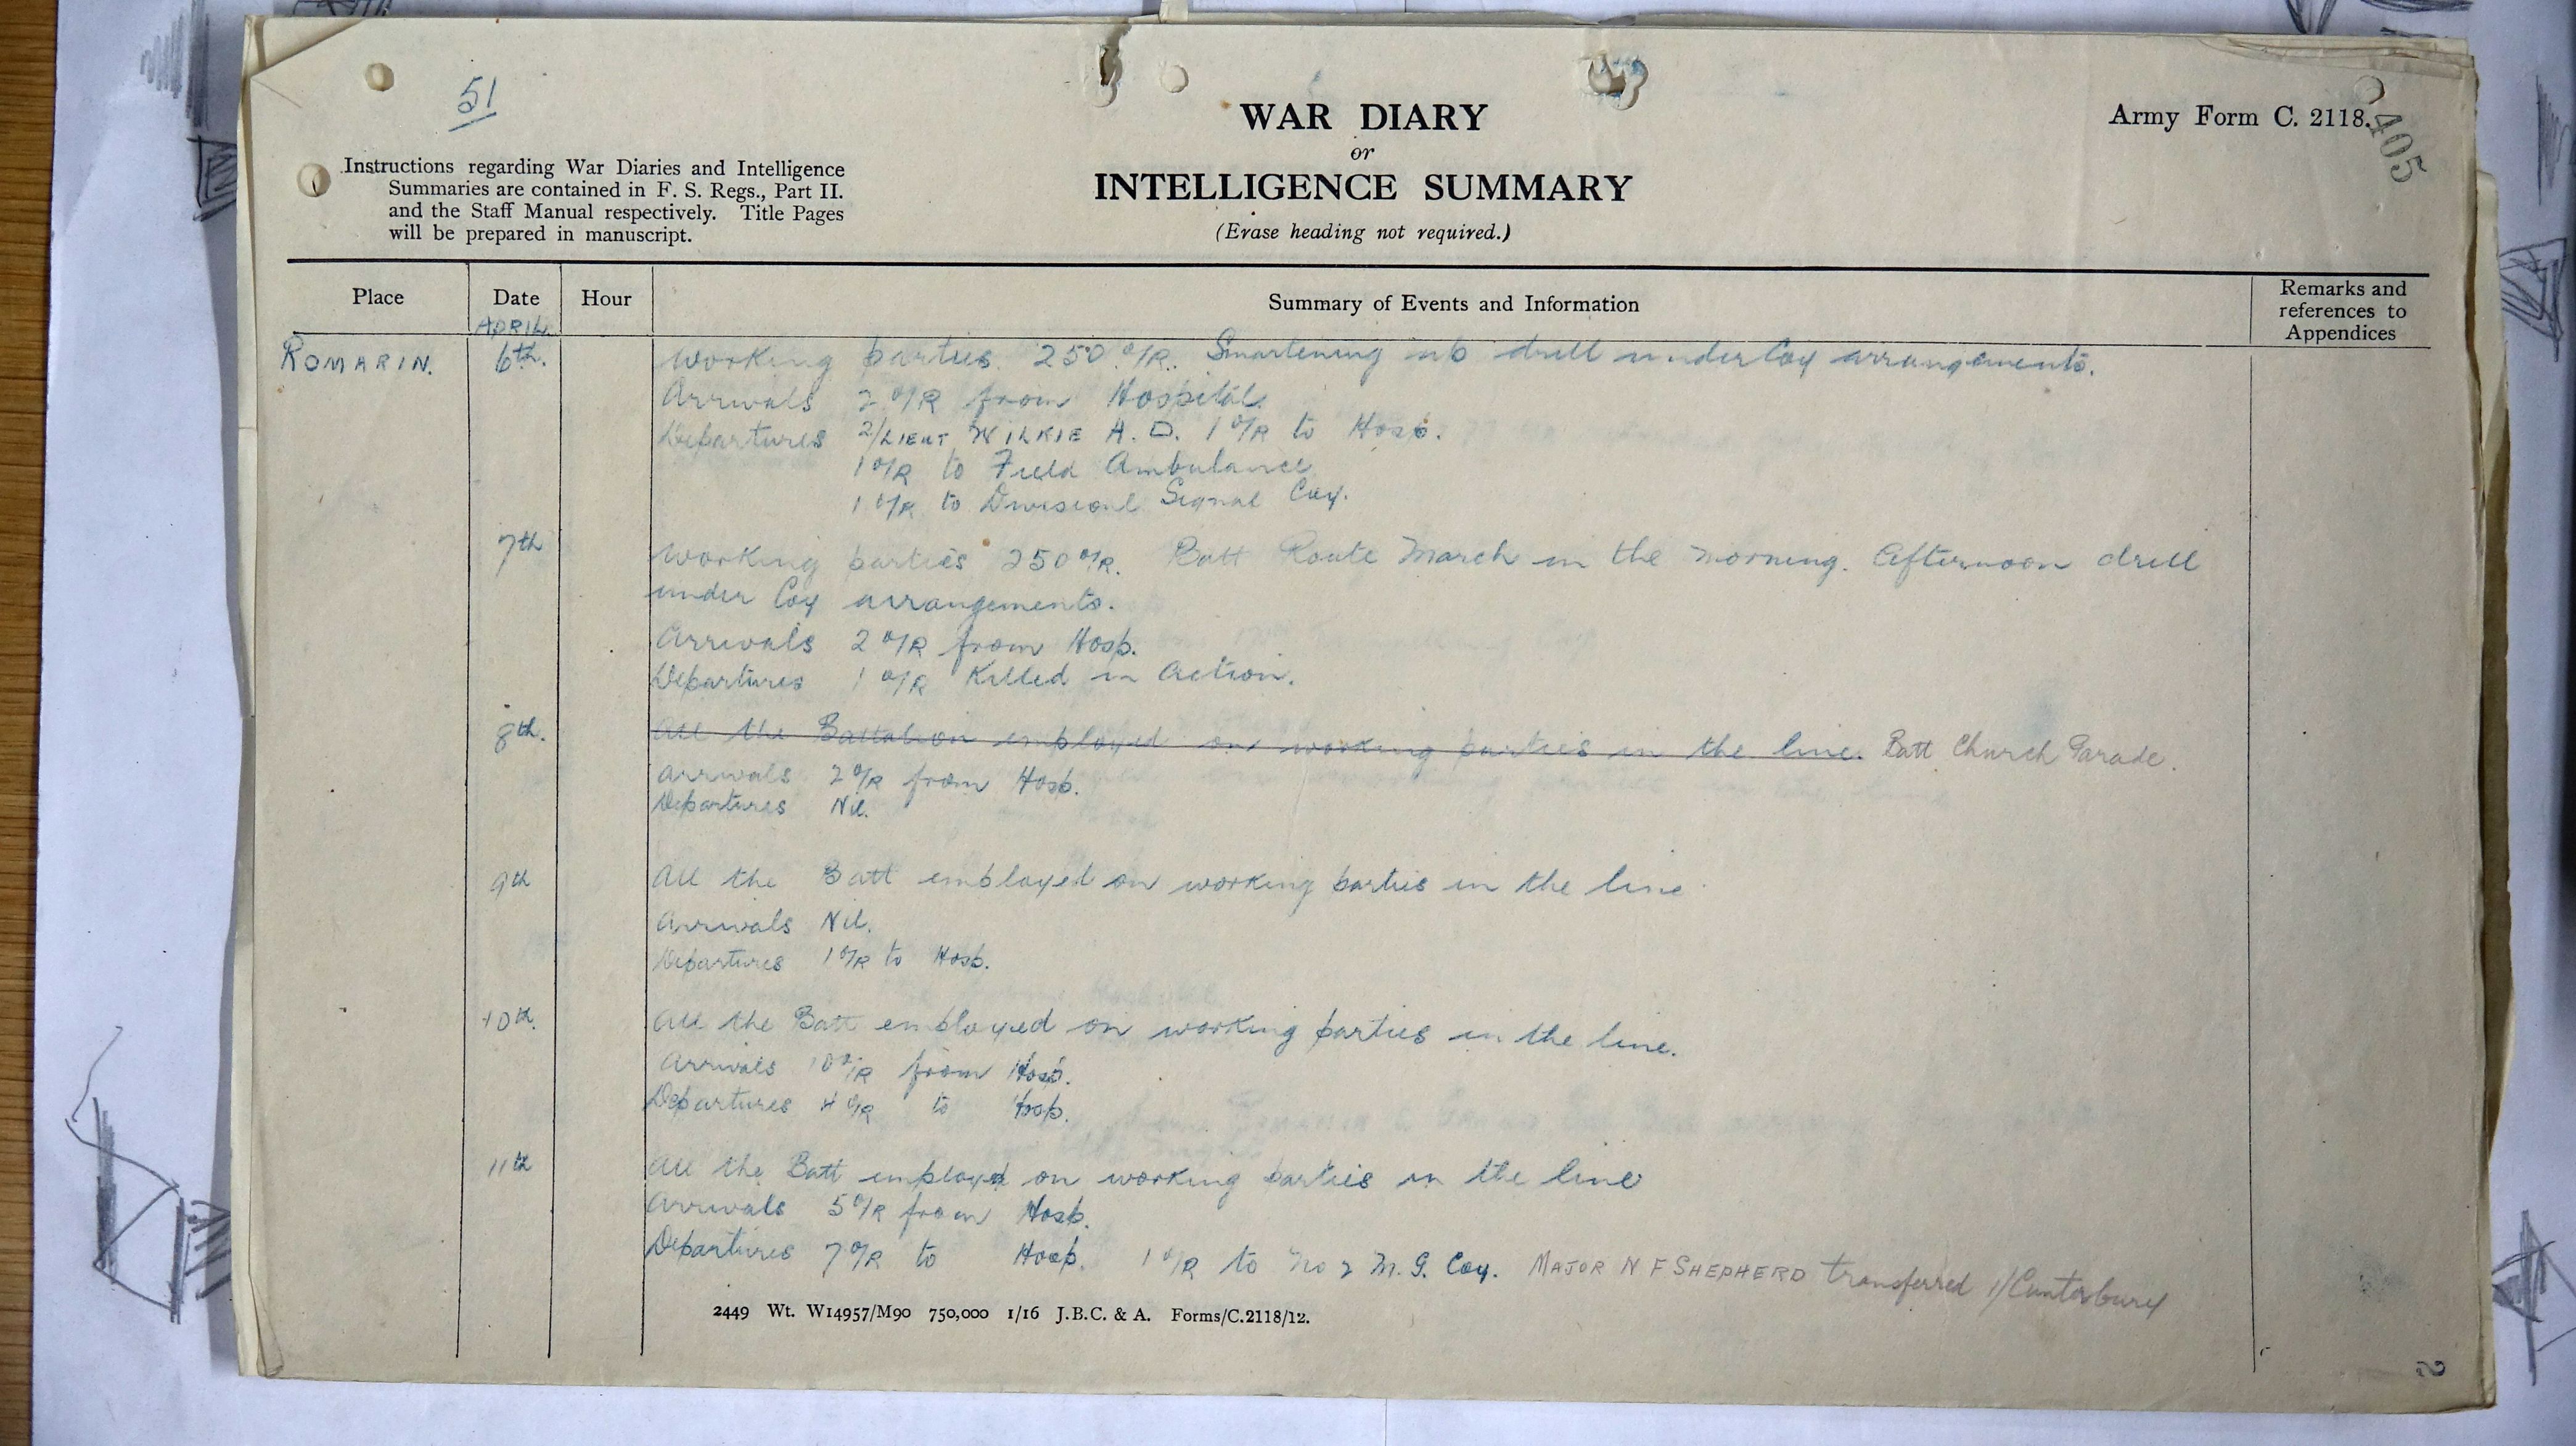 51
WAR DIARY
or
INTELLIGENCE SUMMARY
(Erase heading not required.)
Army Form C. 2118.
405
Instructions regarding War Diaries and Intelligence
Summaries are contained in F. S. Regs., Part II.
and the Staff Manual respectively. Title Pages
will be prepared in manuscript.
Place Date Hour Summary of Events and Information Remarks and references to Appendices
APRIL
ROMARIN. 6th. Working parties 250 O/R. Smartening up drill under Coy arrangements.
Arrivals 2 O/R from Hospital.
Departures 2/LIEUT WILKIE A. D. 1 O/R to Hosp.
1 O/R to Field Ambulance
1 O/R to Divisional Signal Coy.
7th Working parties 250 O/R. Batt Route March in the morning. Afternoon drill
under Coy arrangements.
Arrivals 2 O/R from Hosp.
Departures 1 O/R Killed in Action.
8th. All the Battalion employed on working parties in the line. Batt Church Parade.
Arrivals 2 O/R from Hosp.
Departures Nil.
9th All the Batt employed on working parties in the line
Arrivals Nil.
Departures 1 O/R to Hosp.
10th. All the Batt employed on working parties in the line.
Arrivals 10 O/R from Hosp.
Departures 4 O/R to Hosp.
11th All the Batt employed on working parties in the line
Arrivals 5 O/R from Hosp.
Departures 7 O/R to Hosp. 1 O/R to No 2 M. G. Coy. MAJOR N F SHEPHERD transferred 1/Canterbury
2449 Wt. W14957/M90 750,000 1/16 J.B.C. & A. Forms/C.2118/12.